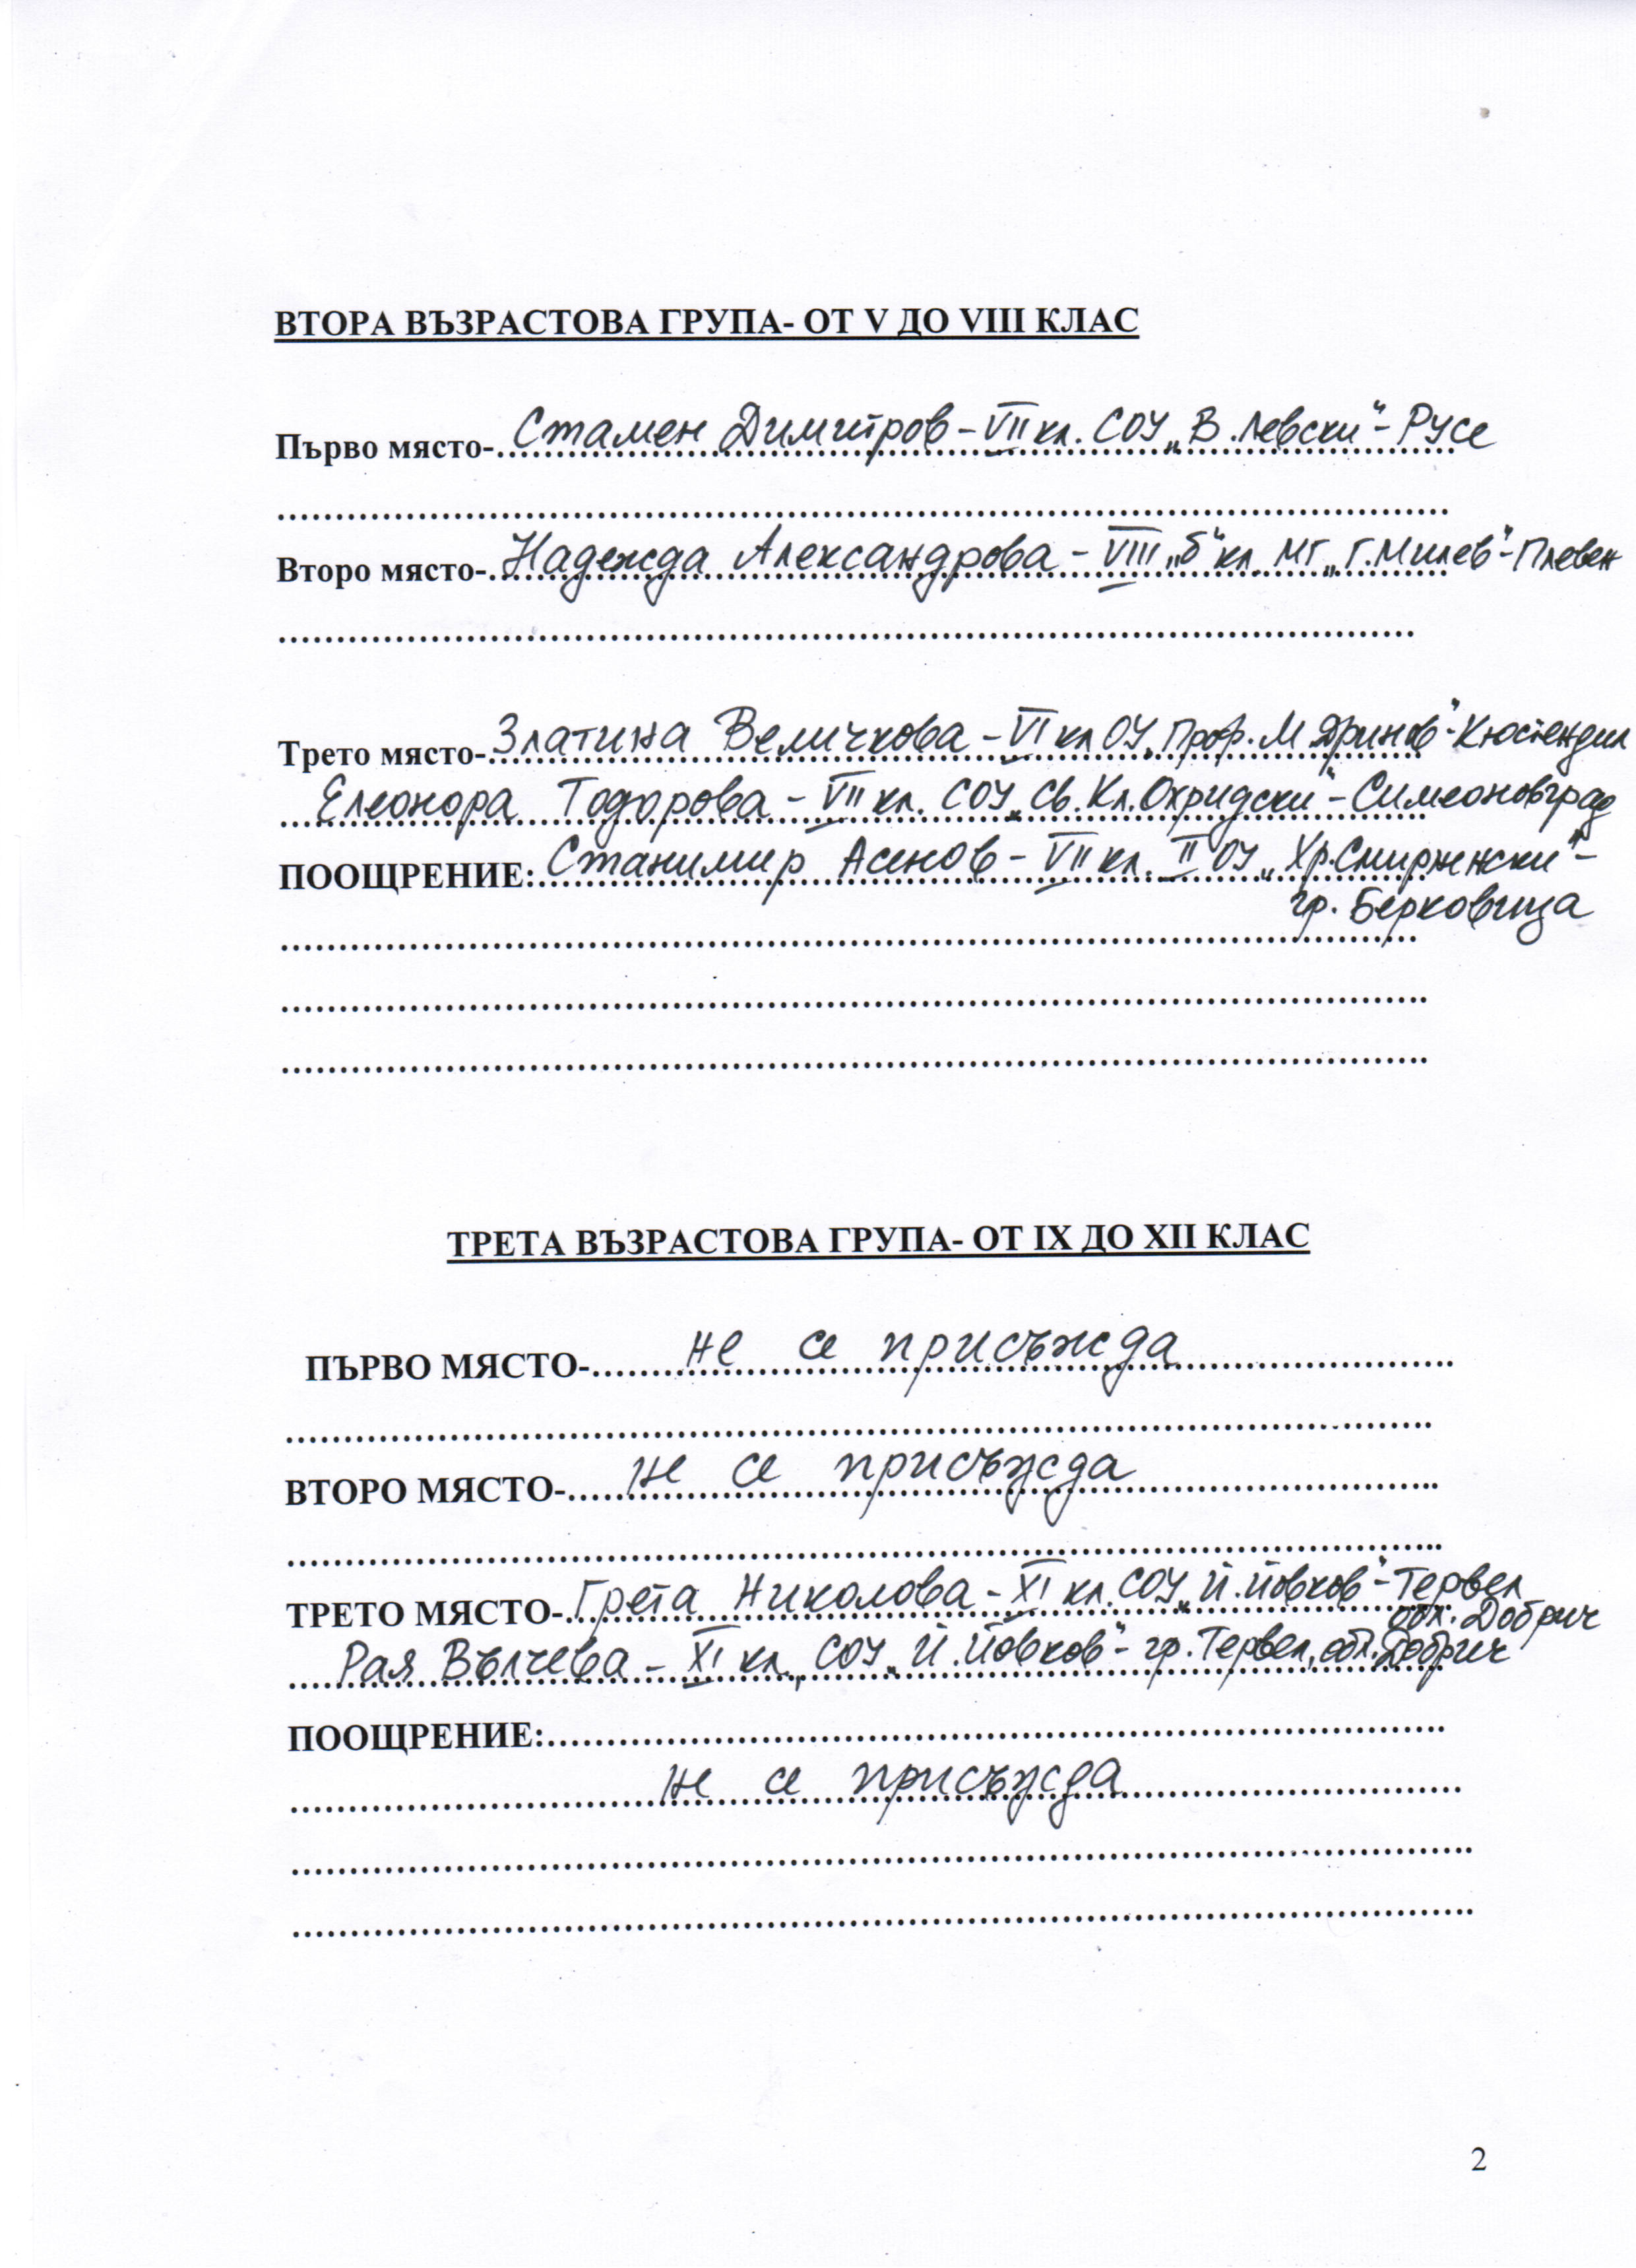 ВТОРА ВЪЗРАСТОВА ГРУПА- ОТ V ДО VIII КЛАС
Първо място- Стамен Димитров – VII кл. СОУ „В. Левски“ – Русе
Второ място- Надежда Александрова – VIII „б“ кл. МГ „Г. Милев“ – Плевен
Трето място- Златина Величкова – VI кл ОУ „Проф. М Дринов“ - Кюстендил
Елеонора Тодорова – VII кл. СОУ „Св. Кл. Охридски“ – Симеоновград
ПООЩРЕНИЕ: Станимир Асенов – VII кл. II ОУ „Хр. Смирненски“ –
гр. Берковица
ТРЕТА ВЪЗРАСТОВА ГРУПА- ОТ IX ДО XII КЛАС
ПЪРВО МЯСТО- не се присъжда
ВТОРО МЯСТО- не се присъжда
ТРЕТО МЯСТО- Грета Николова – XI кл. СОУ „Й. Йовков“ – Тервел
обл. Добрич
Рая Вълчева – XI кл., СОУ „Й. Йовков“ – гр. Тервел, обл. Добрич
ПООЩРЕНИЕ:
не се присъжда
2